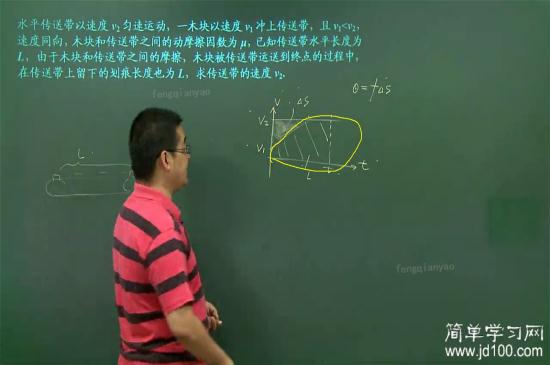 水平传送带以速度 v₂ 匀速运动，一木块以速度 v₁ 冲上传送带，且 v₁<v₂,
速度同向，木块和传送带之间的动摩擦因数为 μ，已知传送带水平长度为
L，由于木块和传送带之间的摩擦，木块被传送带运送到终点的过程中，
在传送带上留下的划痕长度也为 L，求传送带的速度 v₂.
fengqianyao
Q = f ΔS
V
ΔS
V₂
V₁
L
t
L
fengqianyao
简单学习网
www.jd100.com